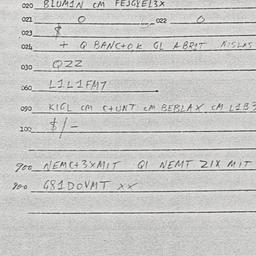 020 BLUMIN CM FEJGLEL3X
021 0 022 0
023 $
024 + Q BANC+OK GL ABRIT NISLAS
030 QZZ
060 L1L1FM7
090 KIGL CM C+UNT CM BEBLAX CM L1B3
100 $/-
900 NEMC+3XMIT QI NEMT ZIX MIT
900 G81DOVMT XX